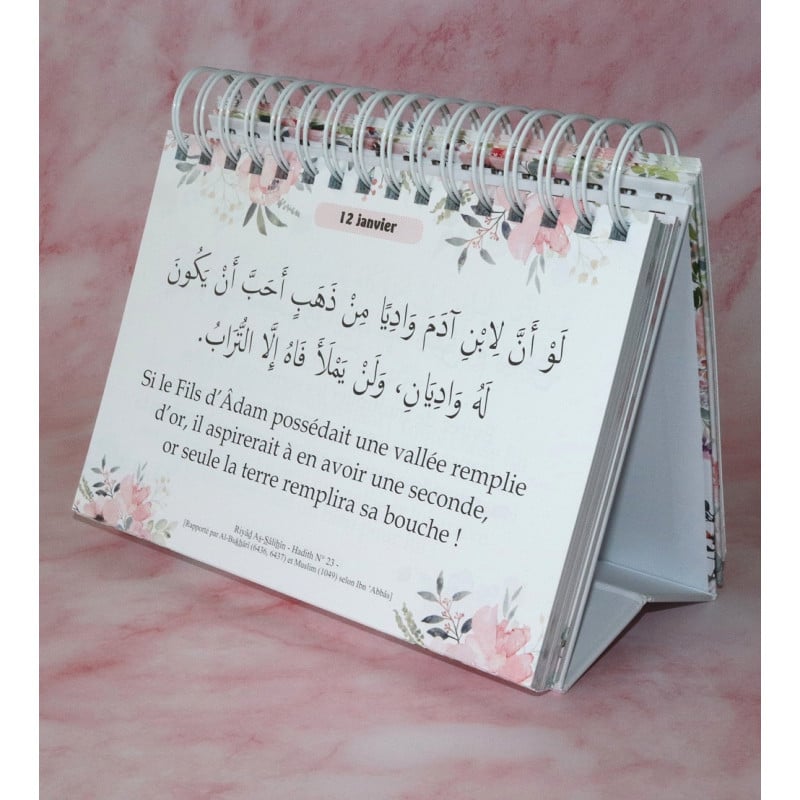 12 janvier
لَوْ أَنَّ لِابْنِ آدَمَ وَادِيًا مِنْ ذَهَبٍ أَحَبَّ أَنْ يَكُونَ
لَهُ وَادِيَانِ، وَلَنْ يَمْلَأَ فَاهُ إِلَّا التُّرَابُ.
Si le Fils d’Âdam possédait une vallée remplie
d’or, il aspirerait à en avoir une seconde,
or seule la terre remplira sa bouche !
Riyâḍ Aṣ-Ṣâliḥîn - Hadith N° 23 -
[Rapporté par Al-Bukhârî (6436, 6437) et Muslim (1049) selon Ibn ʿAbbâs]